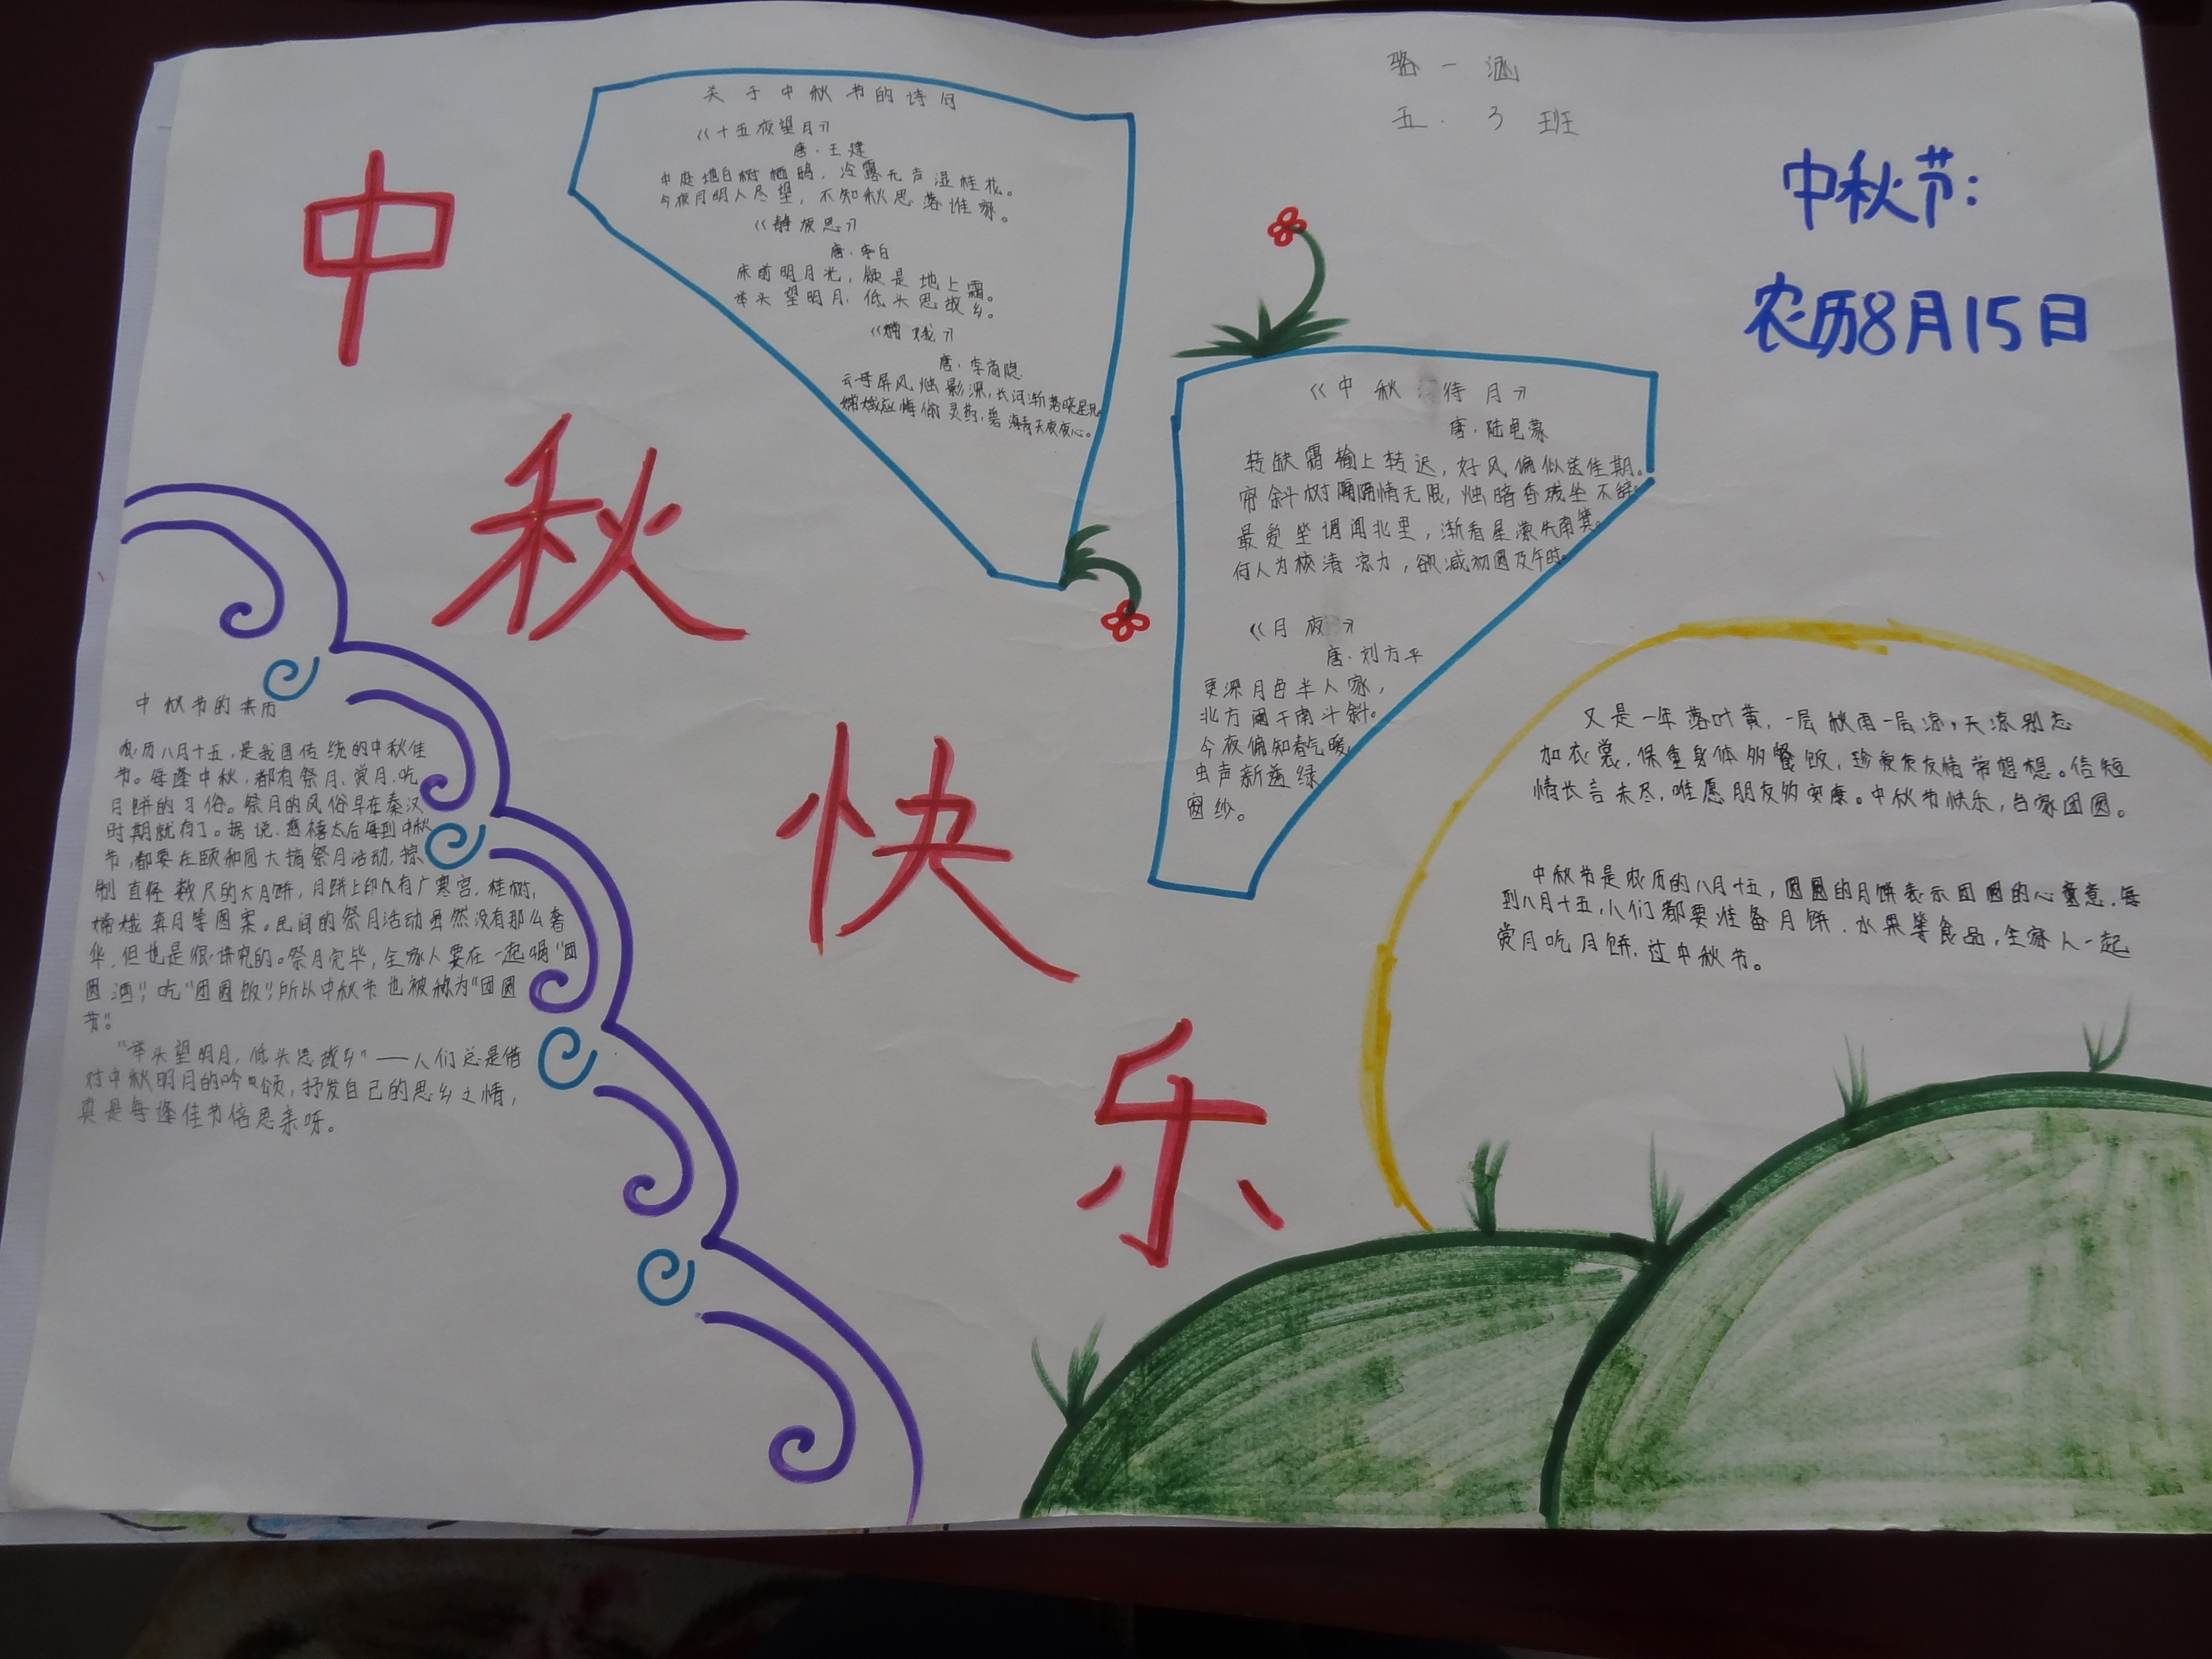 骆一涵
五.3班
中秋节:
农历8月15日
中秋快乐
关于中秋节的诗句
《十五夜望月》
唐·王建
中庭地白树栖鸦，冷露无声湿桂花。
今夜月明人尽望，不知秋思落谁家。
《静夜思》
唐·李白
床前明月光，疑是地上霜。
举头望明月，低头思故乡。
《嫦娥》
唐·李商隐
云母屏风烛影深，长河渐落晓星沉
嫦娥应悔偷灵药，碧海青天夜夜心。
《中秋待月》
唐·陆龟蒙
转缺霜输上转迟，好风偏似送佳期。
帘斜树隔情无限，烛暗香残坐不辞。
最爱坐调闻北里，渐看星濑失南箕。
何人为校清凉力，欲减初圆及午时。
《月夜》
唐·刘方平
更深月色半人家，
北方阑干南斗斜。
今夜偏知春气暖，
虫声新透绿
窗纱。
中秋节的来历
农历八月十五，是我国传统的中秋佳
节。每逢中秋，都有祭月、赏月、吃
月饼的习俗。祭月的风俗早在秦汉
时期就有了。据说，慈禧太后每到中秋
节，都要在颐和园大搞祭月活动，
制直径数尺的大月饼，月饼上印有广寒宫、桂树、
嫦娥奔月等图案。民间的祭月活动虽然没有那么奢
华，但也是很讲究的。祭月完毕，全家人要在一起喝“团
圆酒”，吃“团圆饭”，所以中秋节也被称为“团圆
节”。
“举头望明月，低头思故乡”——人们总是借
对中秋明月的吟颂，抒发自己的思乡之情，
真是每逢佳节倍思亲呀。
又是一年落叶黄，一层秋雨一层凉，天凉别忘
加衣裳，保重身体多餐饭，珍爱友情常想想。信短
情长言未尽，唯愿朋友多安康。中秋节快乐，合家团圆。
中秋节是农历的八月十五，圆圆的月饼表示团圆的心意，每
到八月十五，人们都要准备月饼、水果等食品，全家人一起
赏月吃月饼，过中秋节。